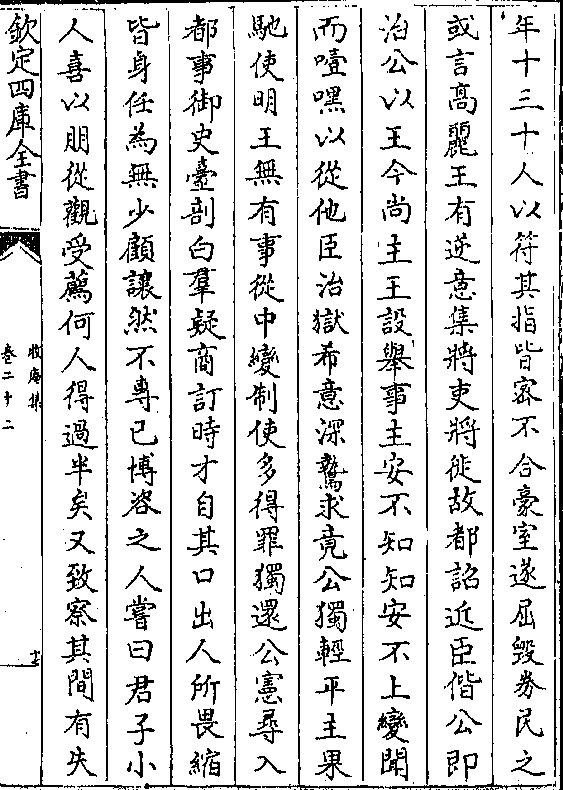 年十三十人以符其指皆寀不合豪室遂屈毀券民之
或言髙麗王有逆意集將吏將徙故都詔近臣偕公即
治公以王今尚主王設舉事主安不知知安不上變聞
而噎嘿以從他臣治獄希意深鷙求竟公獨輕平王果
馳使明王無有事從中變制使多得罪獨還公憲尋入
都事御史臺剖白羣疑商訂時才自其口出人所畏縮
皆身任為無少顧讓然不專已博咨之人嘗曰君子小
人喜以朋從觀受薦何人得過半矣又致察其間有失
欽定四庫全書
牧庵集
卷二十二